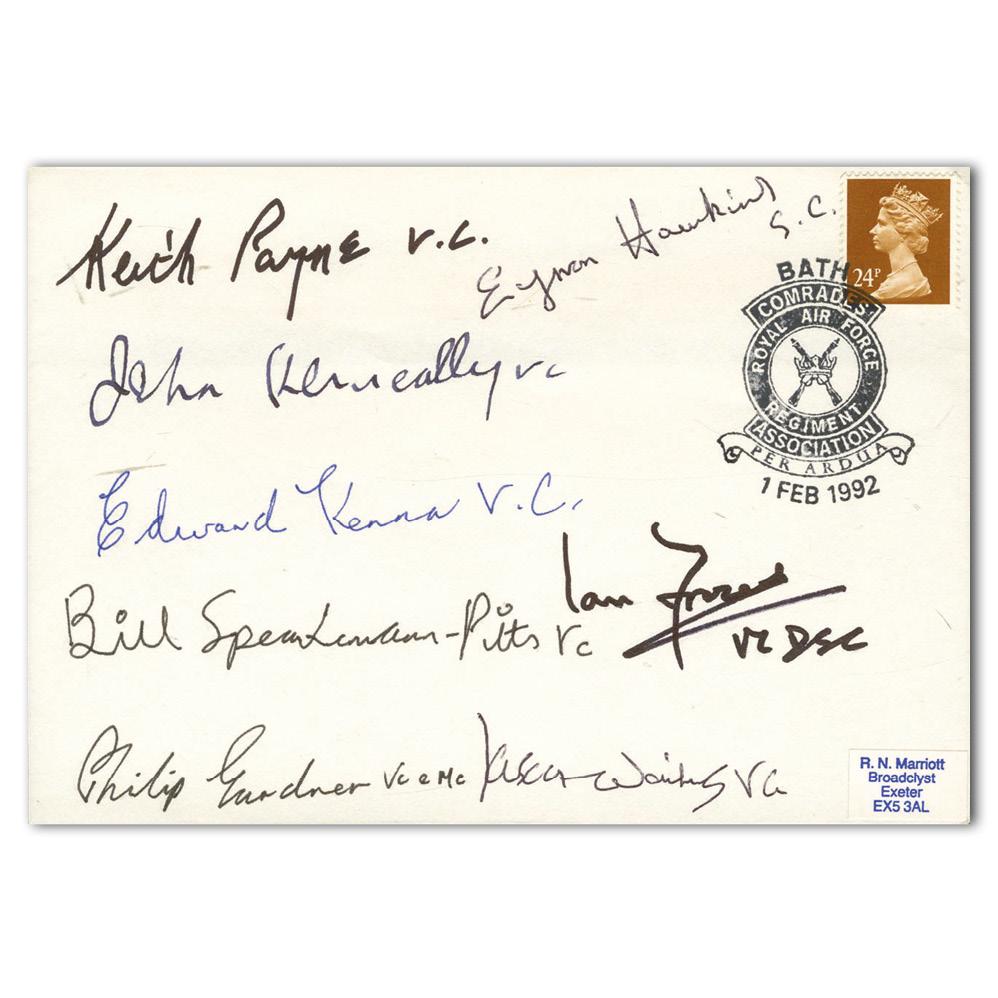 Keith Payne V.C.
Eynon Hawkins G.C.
24P
BATH
COMRADES'
ROYAL AIR FORCE
REGIMENT
ASSOCIATION
PER ARDUA
1 FEB 1992
John Kenneally VC
Edward Kenna V.C.
Ian Fraser
VC DSC
Bill Speakman-Pitts VC
Philip Gardner VC & MC
VC
R. N. Marriott
Broadclyst
Exeter
EX5 3AL